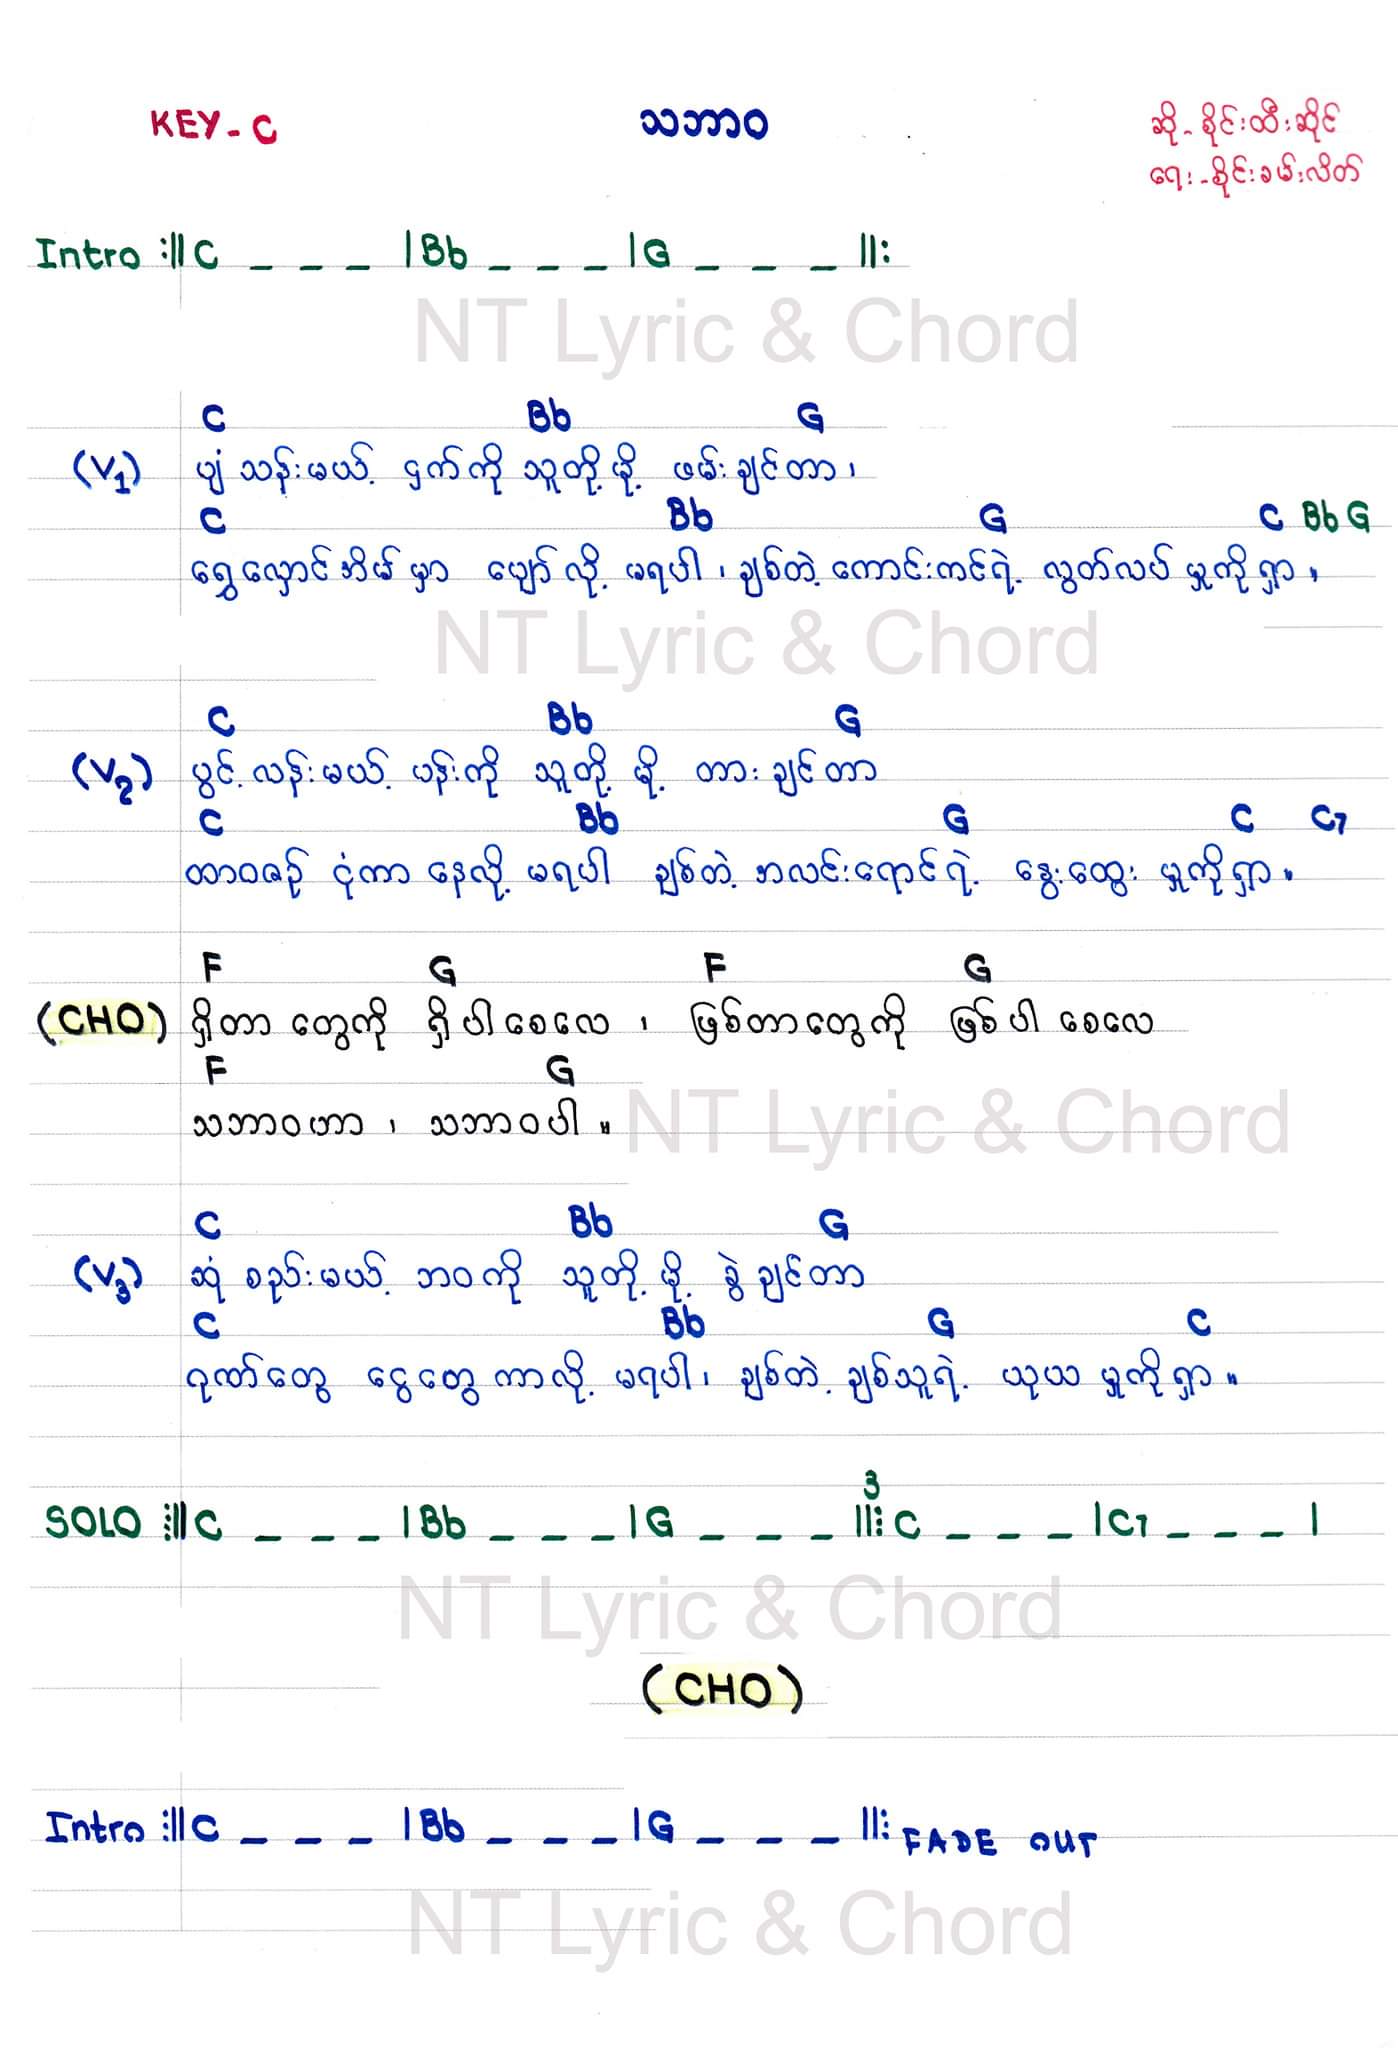 KEY - C
သဘာဝ
ဆို - စိုင်းထီးဆိုင်
ရေး - စိုင်းခမ်းလိတ်
Intro :|| C _ _ _ | Bb _ _ _ | G _ _ _ ||:
NT Lyric & Chord
C Bb G
(V1) ပျံသန်းမယ့် ငှက်ကို သူတို့မို့ ဖမ်းချင်တာ ၊
C Bb G C Bb G
ရွှေလှောင်အိမ်မှာ ပျော်လို့ မရပါ ၊ ချစ်တဲ့ ကောင်းကင်ရဲ့ လွတ်လပ်မှုကိုရှာ ။
NT Lyric & Chord
C Bb G
(V2) ပွင့်လန်းမယ့် ပန်းကို သူတို့မို့ တားချင်တာ
C Bb G C C7
ထာဝစဉ် ငုံကာ နေလို့ မရပါ ချစ်တဲ့ အလင်းရောင်ရဲ့ နွေးထွေးမှုကိုရှာ ။
F G F G
(CHO) ရှိတာတွေကို ရှိပါစေလေ ၊ ဖြစ်တာတွေကို ဖြစ်ပါစေလေ
F G
သဘာဝဟာ ၊ သဘာဝပါ ။
NT Lyric & Chord
C Bb G
(V3) ဆုံစည်းမယ့် ဘဝကို သူတို့မို့ ခွဲချင်တာ
C Bb G C
ဂုဏ်တွေ ငွေတွေ ကာလို့ မရပါ ၊ ချစ်တဲ့ ချစ်သူရဲ့ ယုယမှုကိုရှာ ။
3
SOLO :|| C _ _ _ | Bb _ _ _ | G _ _ _ ||: C _ _ _ | C7 _ _ _ |
NT Lyric & Chord
(CHO)
Intro :|| C _ _ _ | Bb _ _ _ | G _ _ _ ||: FADE OUT
NT Lyric & Chord